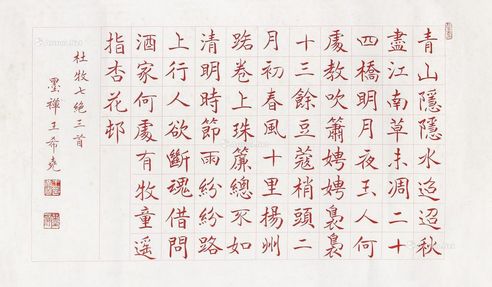 青山隱隱水迢迢秋
盡江南草未凋二十
四橋明月夜玉人何
處教吹簫娉娉裊裊
十三餘豆蔻梢頭二
月初春風十里揚州
路卷上珠簾總不如
清明時節雨紛紛路
上行人欲斷魂借問
酒家何處有牧童遥
指杏花邨
杜牧七絕三首
墨禪王希堯